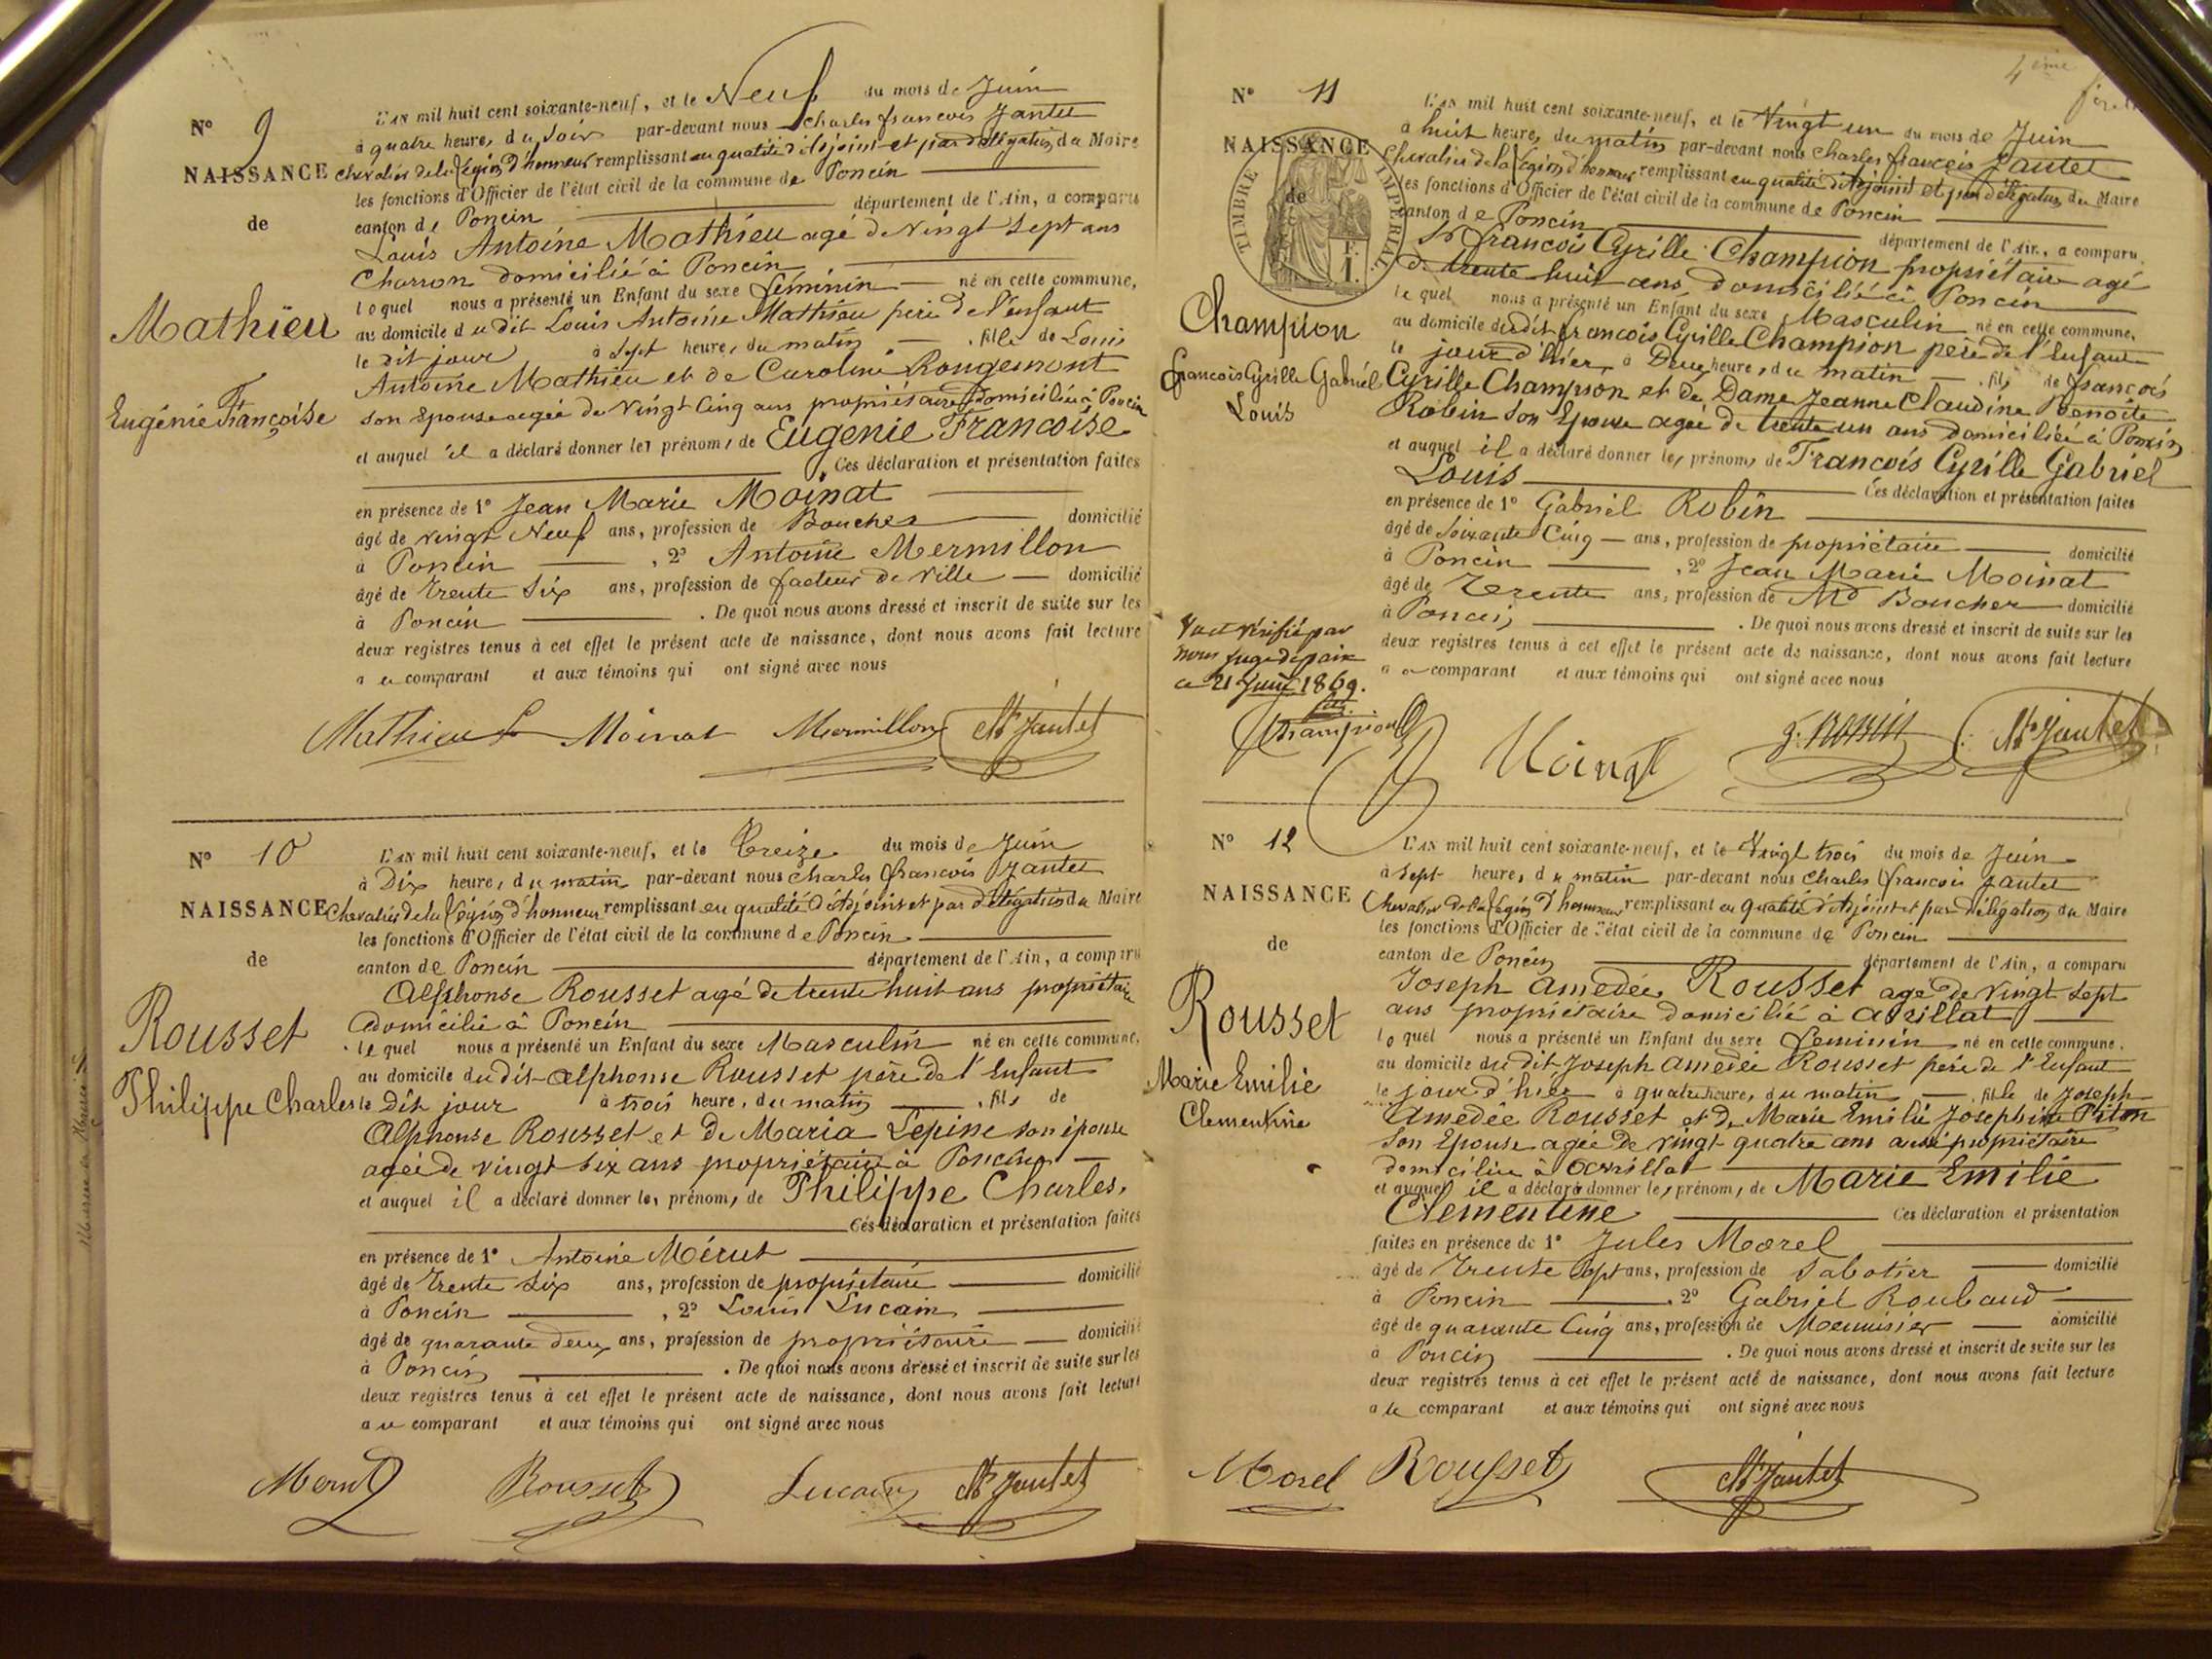 N° 9
NAISSANCE
de
Mathieu
Eugénie Françoise
L'AN mil huit cent soixante-neuf, et le Neuf du mois de Juin
à quatre heures du soir par-devant nous Charles francois Jantet
chevalier de la Légion d'honneur remplissant en qualité d'Adjoint et par délégation du Maire
les fonctions d'Officier de l'état civil de la commune de Poncin
canton de Poncin département de l'Ain, a comparu
Louis Antoine Mathieu agé de vingt sept ans
Charron domicilié à Poncin
lequel nous a présenté un Enfant du sexe féminin né en cette commune,
au domicile du dit Louis Antoine Mathieu père de l'enfant
le dit jour à sept heures du matin , fille de Louis
Antoine Mathieu et de Caroline Rougemont
son Epouse agée de vingt cinq ans propriétaire domiciliée à Poncin
et auquel il a déclaré donner les prénoms de Eugénie Francoise
Ces déclaration et présentation faites
en présence de 1° Jean Marie Moinat
âgé de vingt Neuf ans, profession de Boucher domicilié
à Poncin , 2° Antoine Mermillon
âgé de Trente Six ans, profession de facteur de ville domicilié
à Poncin . De quoi nous avons dressé et inscrit de suite sur les
deux registres tenus à cet effet le présent acte de naissance, dont nous avons fait lecture
au comparant et aux témoins qui ont signé avec nous
Mathieu L Moinat Mermillon Jantet
N° 10
NAISSANCE
de
Rousset
Philippe Charles
L'AN mil huit cent soixante-neuf, et le Treize du mois de Juin
à Dix heures du matin par-devant nous Charles francois Jantet
Chevalier de la Légion d'honneur remplissant en qualité d'Adjoint et par délégation du Maire
les fonctions d'Officier de l'état civil de la commune de Poncin
canton de Poncin département de l'Ain, a comparu
Alphonse Rousset agé de trente huit ans propriétaire
domicilié à Poncin
lequel nous a présenté un Enfant du sexe Masculin né en cette commune,
au domicile du dit Alphonse Rousset père de l'Enfant
le dit jour à trois heures du matin , fils de
Alphonse Rousset et de Maria Lepine son épouse
agée de vingt six ans propriétaire à Poncin
et auquel il a déclaré donner les prénoms de Philippe Charles,
Ces déclaration et présentation faites
en présence de 1° Antoine Mérut
âgé de Trente Six ans, profession de propriétaire domicilié
à Poncin , 2° Louis Lucain
âgé de quarante deux ans, profession de propriétaire domicilié
à Poncin . De quoi nous avons dressé et inscrit de suite sur les
deux registres tenus à cet effet le présent acte de naissance, dont nous avons fait lecture
au comparant et aux témoins qui ont signé avec nous
Merut Rousset Lucain Jantet
4ème
N° 11
NAISSANCE
de
TIMBRE IMPERIAL
1 F.
Champion
francois Cyrille Gabriel
Louis
L'AN mil huit cent soixante-neuf, et le Vingt un du mois de Juin
à huit heures du matin par-devant nous Charles francois Jantet
Chevalier de la Légion d'honneur remplissant en qualité d'Adjoint et par délégation du Maire
les fonctions d'Officier de l'état civil de la commune de Poncin
canton de Poncin département de l'Ain, a comparu
Sr francois Cyrille Champion propriétaire agé
de trente huit ans, domicilié à Poncin
lequel nous a présenté un Enfant du sexe Masculin né en cette commune,
au domicile du dit francois Cyrille Champion père de l'Enfant
le jour d'hier à Deux heures du matin , fils de francois
Cyrille Champion et de Dame Jeanne Claudine Benoite
Robin son Epouse agée de trente un ans domiciliée à Poncin
et auquel il a déclaré donner les prénoms de Francois Cyrille Gabriel
Louis Ces déclaration et présentation faites
en présence de 1° Gabriel Robin
âgé de Soixante Cinq ans, profession de propriétaire domicilié
à Poncin , 2° Jean Marie Moinat
âgé de Trente ans, profession de Md Boucher domicilié
à Poncin . De quoi nous avons dressé et inscrit de suite sur les
deux registres tenus à cet effet le présent acte de naissance, dont nous avons fait lecture
au comparant et aux témoins qui ont signé avec nous
Vu et vérifié par
nous Juge de paix
ce 21 Juin 1869.
Champion Moinat G. ROBIN Jantet
N° 12
NAISSANCE
de
Rousset
Marie Emilie
Clementine
L'AN mil huit cent soixante-neuf, et le Vingt trois du mois de Juin
à Sept heures du matin par-devant nous Charles francois Jantet
Chevalier de la Légion d'honneur remplissant en qualité d'Adjoint et par délégation du Maire
les fonctions d'Officier de l'état civil de la commune de Poncin
canton de Poncin département de l'Ain, a comparu
Joseph Amedée Rousset agé de vingt sept
ans propriétaire domicilié à
lequel nous a présenté un Enfant du sexe féminin né en cette commune,
au domicile du dit Joseph Amedée Rousset père de l'Enfant
le jour d'hier à quatre heures du matin , fille de Joseph
Amedée Rousset et de Marie Emilie Josephine Piton
son Epouse agée de vingt quatre ans aussi propriétaire
domiciliée à
et auquel il a déclaré donner les prénoms de Marie Emilie
Clementine Ces déclaration et présentation
faites en présence de 1° Jules Morel
âgé de Trente Sept ans, profession de Sabotier domicilié
à Poncin , 2° Gabriel Roubaud
âgé de quarante Cinq ans, profession de Menuisier domicilié
à Poncin . De quoi nous avons dressé et inscrit de suite sur les
deux registres tenus à cet effet le présent acte de naissance, dont nous avons fait lecture
au comparant et aux témoins qui ont signé avec nous
Morel Rousset Jantet